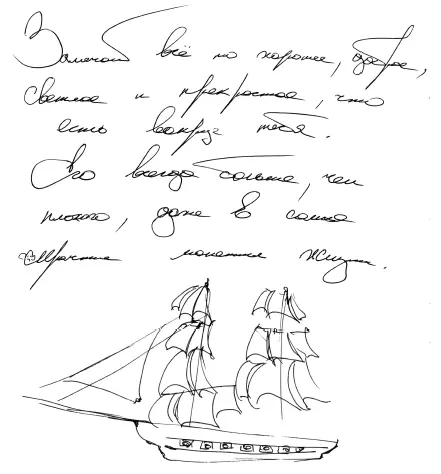 Замечай всё то хорошее, доброе,
светлое и прекрасное, что
есть вокруг тебя.
Его всегда больше, чем
плохого, даже в самые
мрачные моменты жизни.